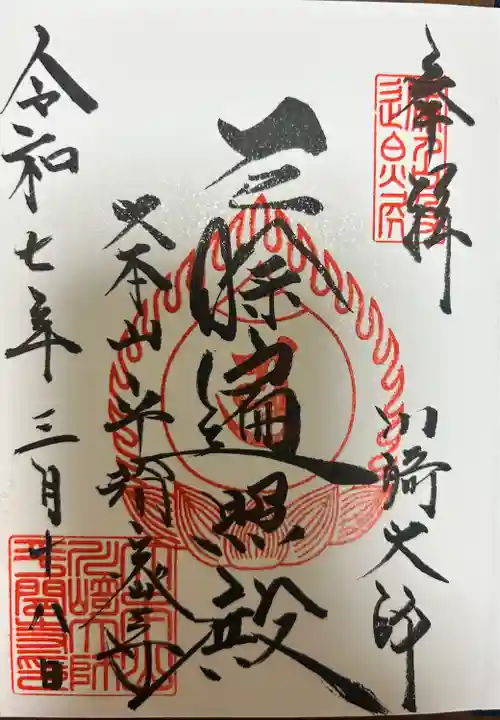 奉拝
川崎大師
厄除遍照殿
大本山平間寺
令和七年三月十八日